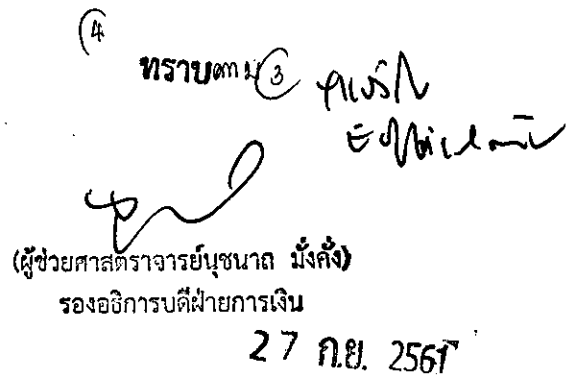 ④
ทราบตาม ③
(ผู้ช่วยศาสตราจารย์นุชนาถ มั่งคั่ง)
รองอธิการบดีฝ่ายการเงิน
27 ก.ย. 2561